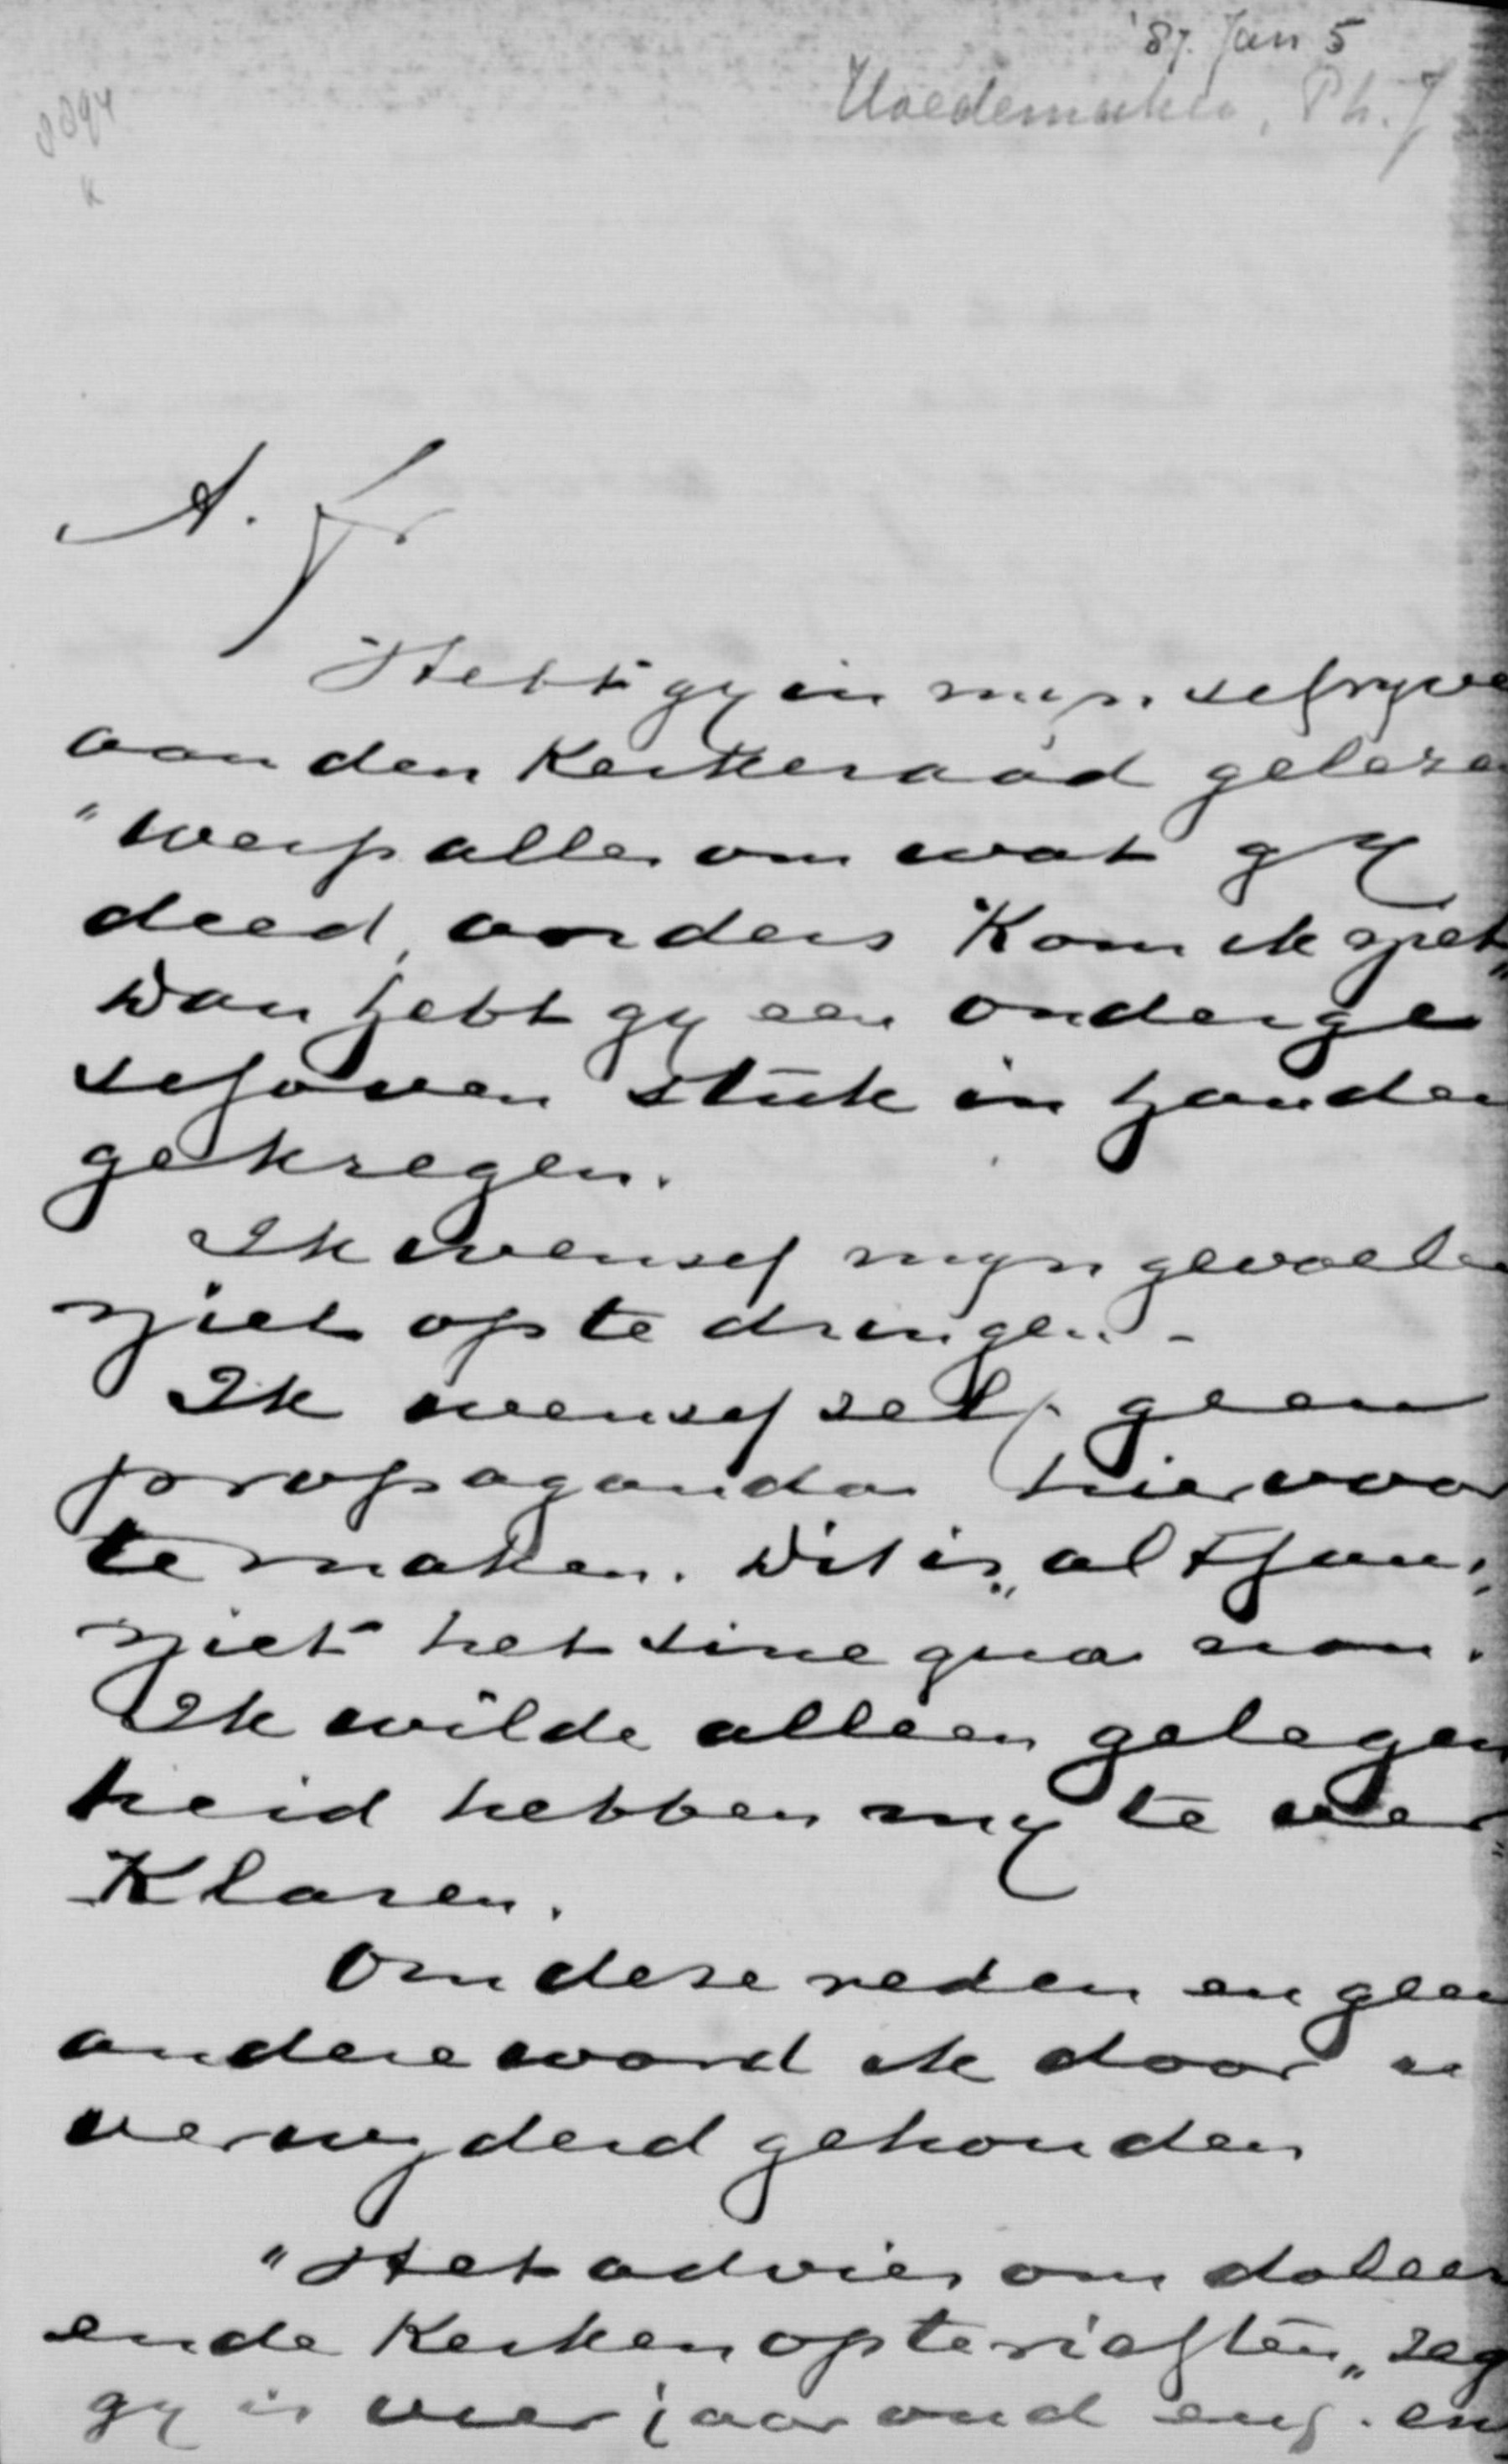 '87. Jan 5
Hoedemaker, Ph. J
A. Fr
Hebt gy in myn schryve
aan den Kerkeraad geleze
"werp alles om wat gy
deed, anders kom ik niet"
Dan hebt gy een onderge
schoven stuk in handen
gekregen.
Ik wensch myn gevoele
niet op te dringen. -
Ik wensch zelfs geen
propaganda hiervoor
te maken. Dit is „althans"
niet het sine qua non.
Ik wilde alleen gelegen
heid hebben my te ver"
klaren.
Om deze reden en geen
andere word ik door u
verwyderd gehouden
"Het advies om doleer
ende Kerken op te richten„ zeg
gy is vier jaar oud en